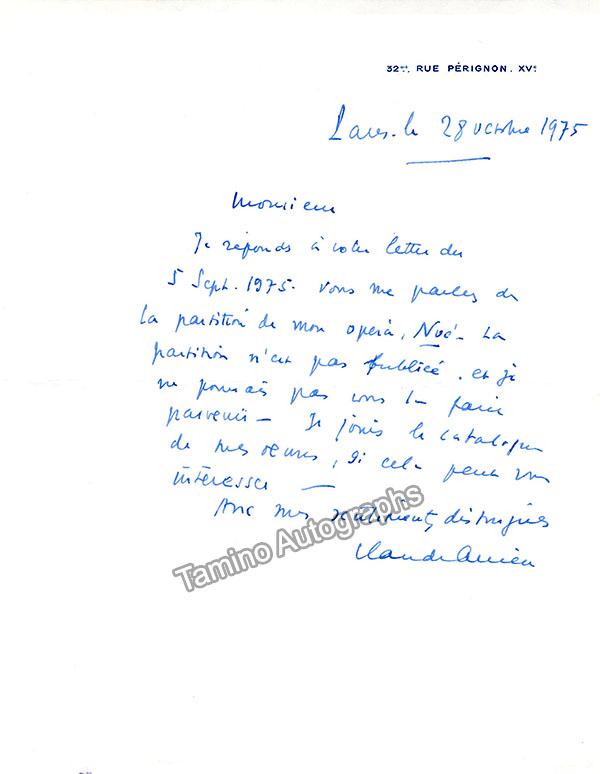 32bis, RUE PÉRIGNON. XVe
Paris. le 28 octobre 1975
Monsieur
Je réponds à votre lettre du
5 Sept. 1975. Vous me parlez de
la partition de mon opéra, Noé. La
partition n'est pas publiée. et je
ne pourrais pas vous la faire
parvenir — Je joins le catalogue
de mes oeuvres, si cela peut vous
intéresser —
Avec mes sentiments distingués
Claude Arrieu
Tamino Autographs